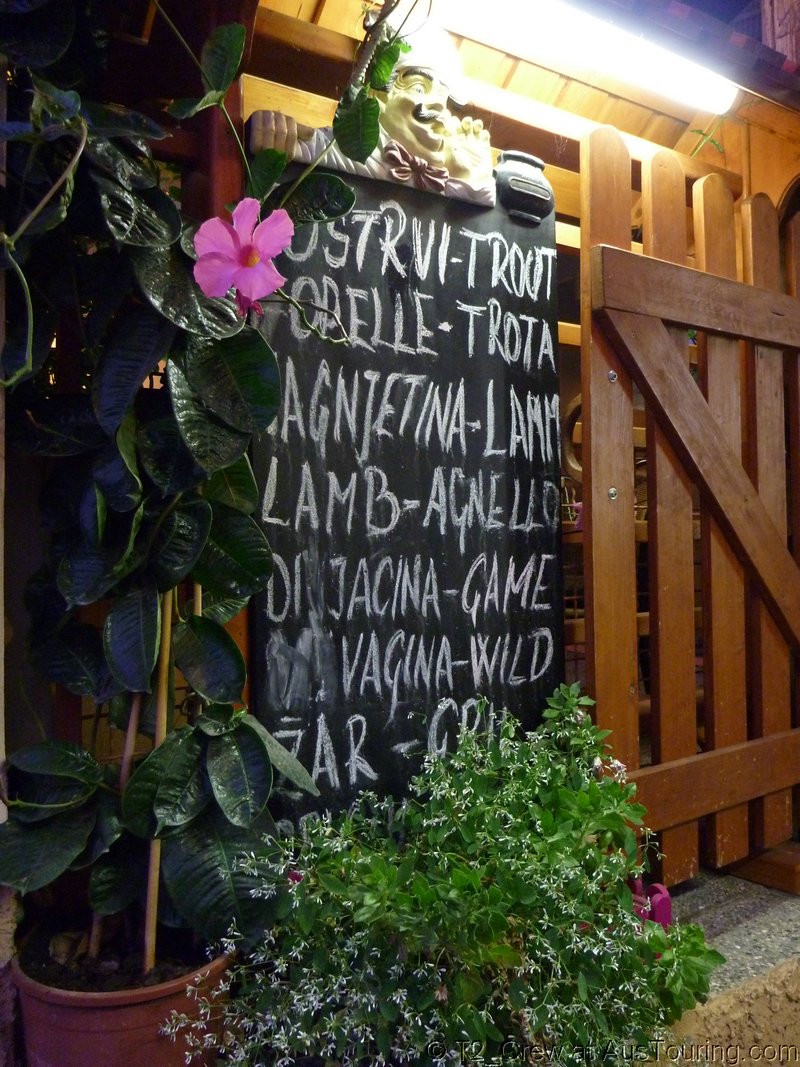 OSTRVI-TROUT
OBELLE-TROTA
JAGNJETINA-LAMM
LAMB-AGNELLO
DIVJACINA-GAME
VAGINA-WILD
ŽAR -
© T2_Crew at AusTouring.com